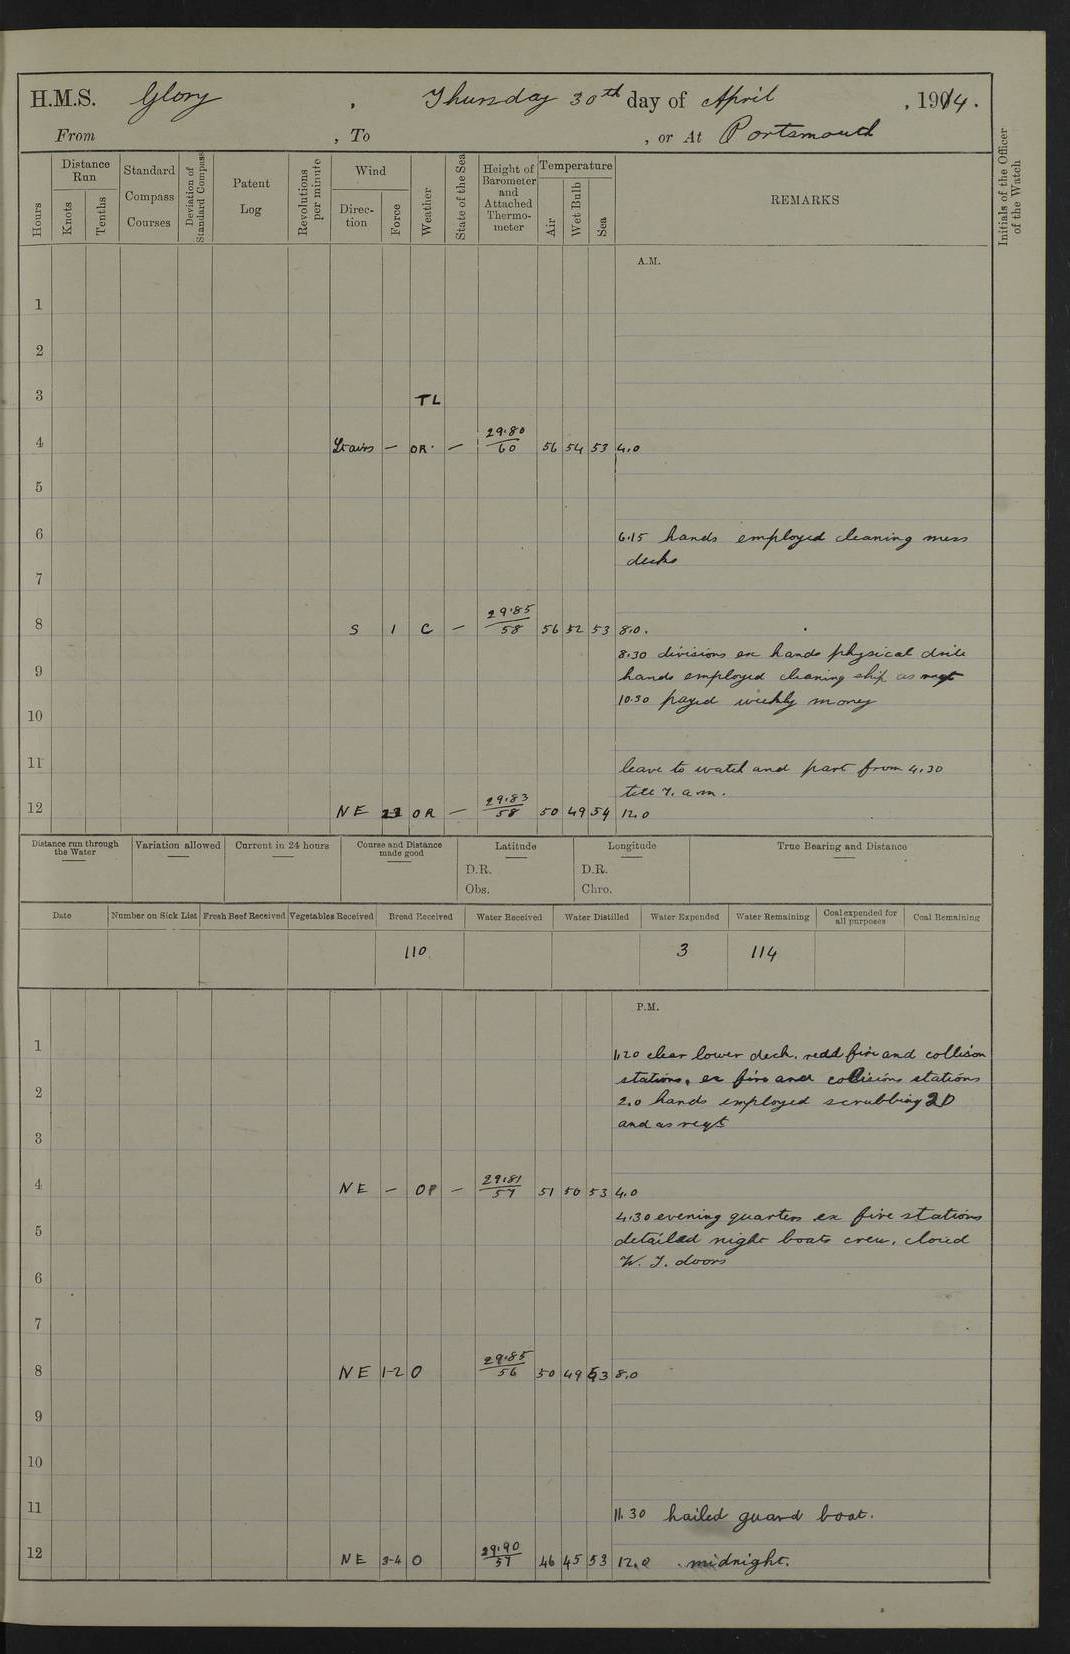 H.M.S. Glory , Thursday 30th day of April , 1914.
From , To , or At Portsmouth
Hours
Distance Run
Knots
Tenths
Standard Compass Courses
Deviation of Standard Compass
Patent Log
Revolutions per minute
Wind
Direction
Force
Weather
State of the Sea
Height of Barometer and Attached Thermometer
Temperature
Air
Wet Bulb
Sea
REMARKS
Initials of the Officer of the Watch
A.M.
1
2
3 TL
4 — OR. — 29.80/60 56 54 53 4.0
5
6 6.15 hands employed cleaning mess
decks
7
8 S 1 C — 29.85/58 56 52 53 8.0.
8.30 divisions ex hands physical drill
9 hands employed cleaning ship as reqt
10.30 payed weekly money
10
11 leave to watch and part from 4.30
till 7. a.m.
12 NE OR — 29.83/58 50 49 54 12.0
Distance run through the Water
Variation allowed
Current in 24 hours
Course and Distance made good
Latitude
D.R.
Obs.
Longitude
D.R.
Chro.
True Bearing and Distance
Date
Number on Sick List
Fresh Beef Received
Vegetables Received
Bread Received
Water Received
Water Distilled
Water Expended
Water Remaining
Coal expended for all purposes
Coal Remaining
110 3 114
P.M.
1 1.20 clear lower deck. redd fire and collision
stations. ex fire and collisions stations
2 2.0 hands employed scrubbing 2D
and as reqt
3
4 NE — OP — 29.81/57 51 50 53 4.0
4.30 evening quarters ex fire stations
5 detailed night boats crew, closed
W. T. doors
6
7
8 NE 1-2 O 29.85/56 50 49 53 8.0
9
10
11 11.30 hailed guard boat.
12 NE 3-4 O 29.90/57 46 45 53 12.0 midnight.